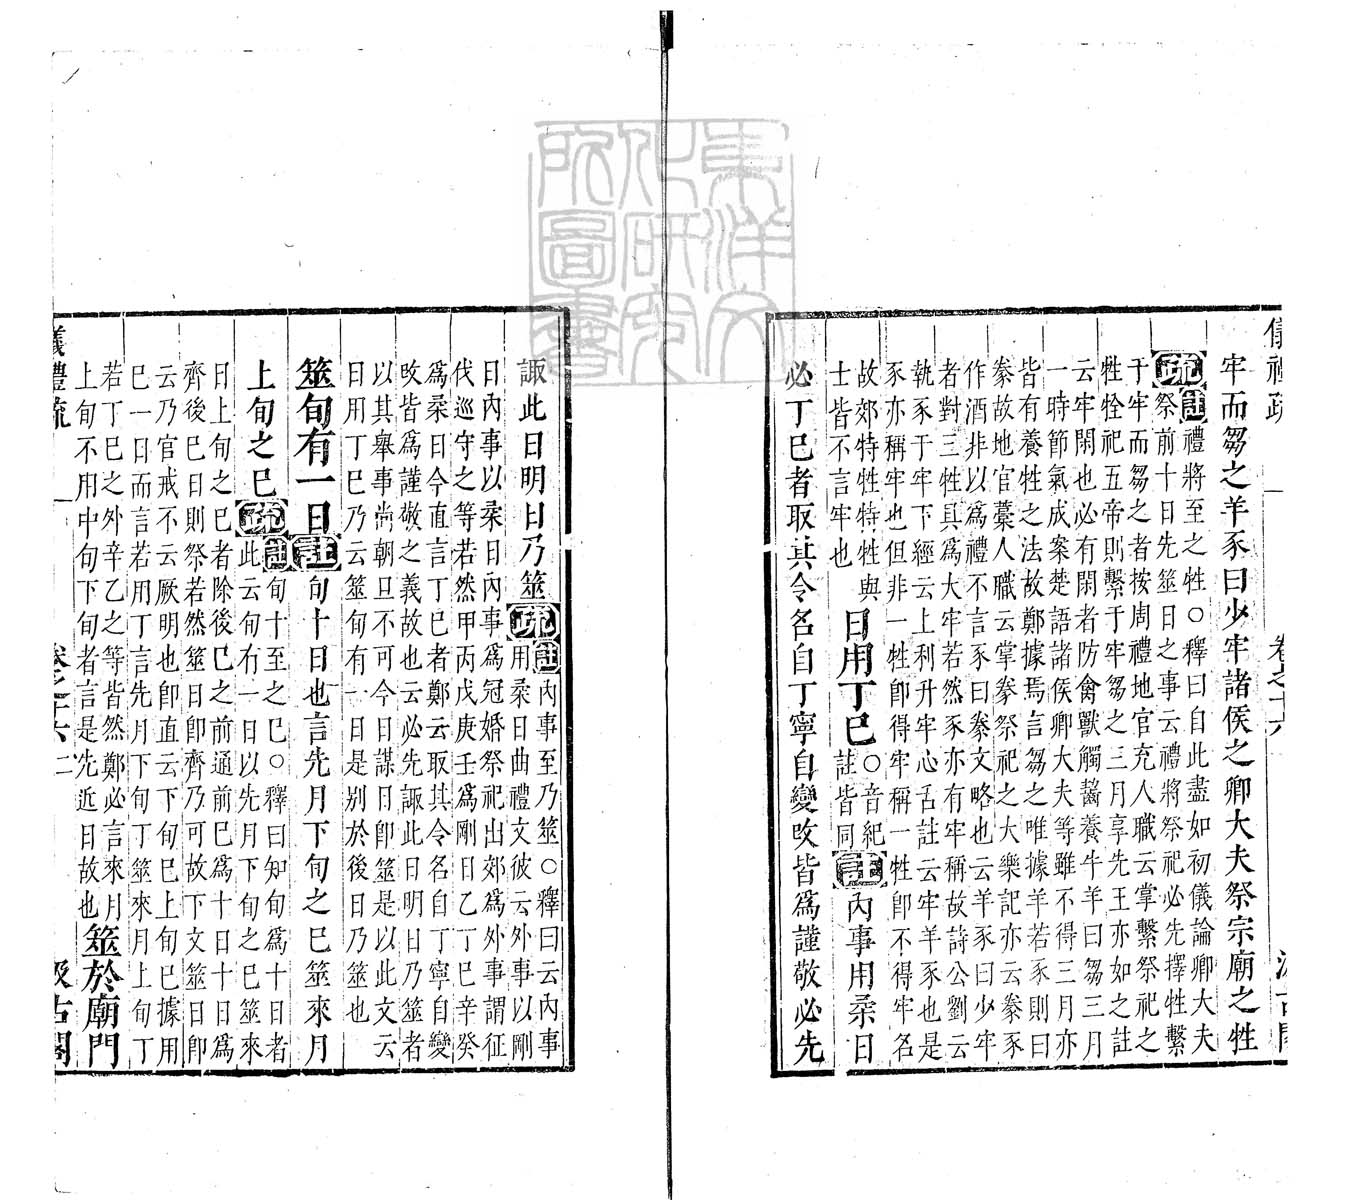 儀禮疏 卷之十六 汲古閣
牢而芻之羊豕曰少牢諸侯之卿大夫祭宗廟之牲
疏註禮將至之牲○釋曰自此盡如初儀論卿大夫
祭前十日先筮日之事云禮將祭祀必先擇牲繫
于牢而芻之者按周禮地官充人職云掌繫祭祀之
牲牷祀五帝則繫于牢芻之三月享先王亦如之註
云牢閑也必有閑者防禽獸觸齧養牛羊曰芻三月
一時節氣成案楚語諸侯卿大夫等雖不得三月亦
皆有養牲之法故鄭據焉言芻之唯據羊若豕則曰
豢故地官藁人職云掌豢祭祀之犬樂記亦云豢豕
作酒非以爲禮不言豕曰豢文略也云羊豕曰少牢
者對三牲具爲大牢若然豕亦有牢稱故詩公劉云
執豕于牢下經云上利升牢心舌註云牢羊豕也是
豕亦稱牢也但非一牲卽得牢稱一牲卽不得牢名
故郊特牲特牲與
士皆不言牢也
日用丁巳○音紀
註皆同
註內事用柔日
必丁巳者取其令名自丁寧自變改皆爲謹敬必先
諏此日明日乃筮疏註內事至乃筮○釋曰云內事
用柔日曲禮文彼云外事以剛
日內事以柔日內事爲冠婚祭祀出郊爲外事謂征
伐巡守之等若然甲丙戊庚壬爲剛日乙丁巳辛癸
爲柔日今直言丁巳者鄭云取其令名自丁寧自變
改皆爲謹敬之義故也云必先諏此日明日乃筮者
以其舉事尚朝旦不可今日謀日卽筮是以此文云
日用丁巳乃云筮旬有一日是別於後日乃筮也
筮旬有一日註旬十日也言先月下旬之巳筮來月
上旬之巳疏註旬十至之巳○釋曰知旬爲十日者
此云旬有一日以先月下旬之巳筮來
日上旬之巳者除後巳之前通前巳爲十日十日爲
齊後巳日則祭若然筮日卽齊乃可故下文筮日卽
云乃官戒不云厥明也卽直云下旬巳上旬巳據用
巳一日而言若用丁言先月下旬丁筮來月上旬丁
若丁巳之外辛乙之等皆然鄭必言來月
上旬不用中旬下旬者言是先近日故也
筮於廟門
儀禮疏 卷之十六 二 汲古閣